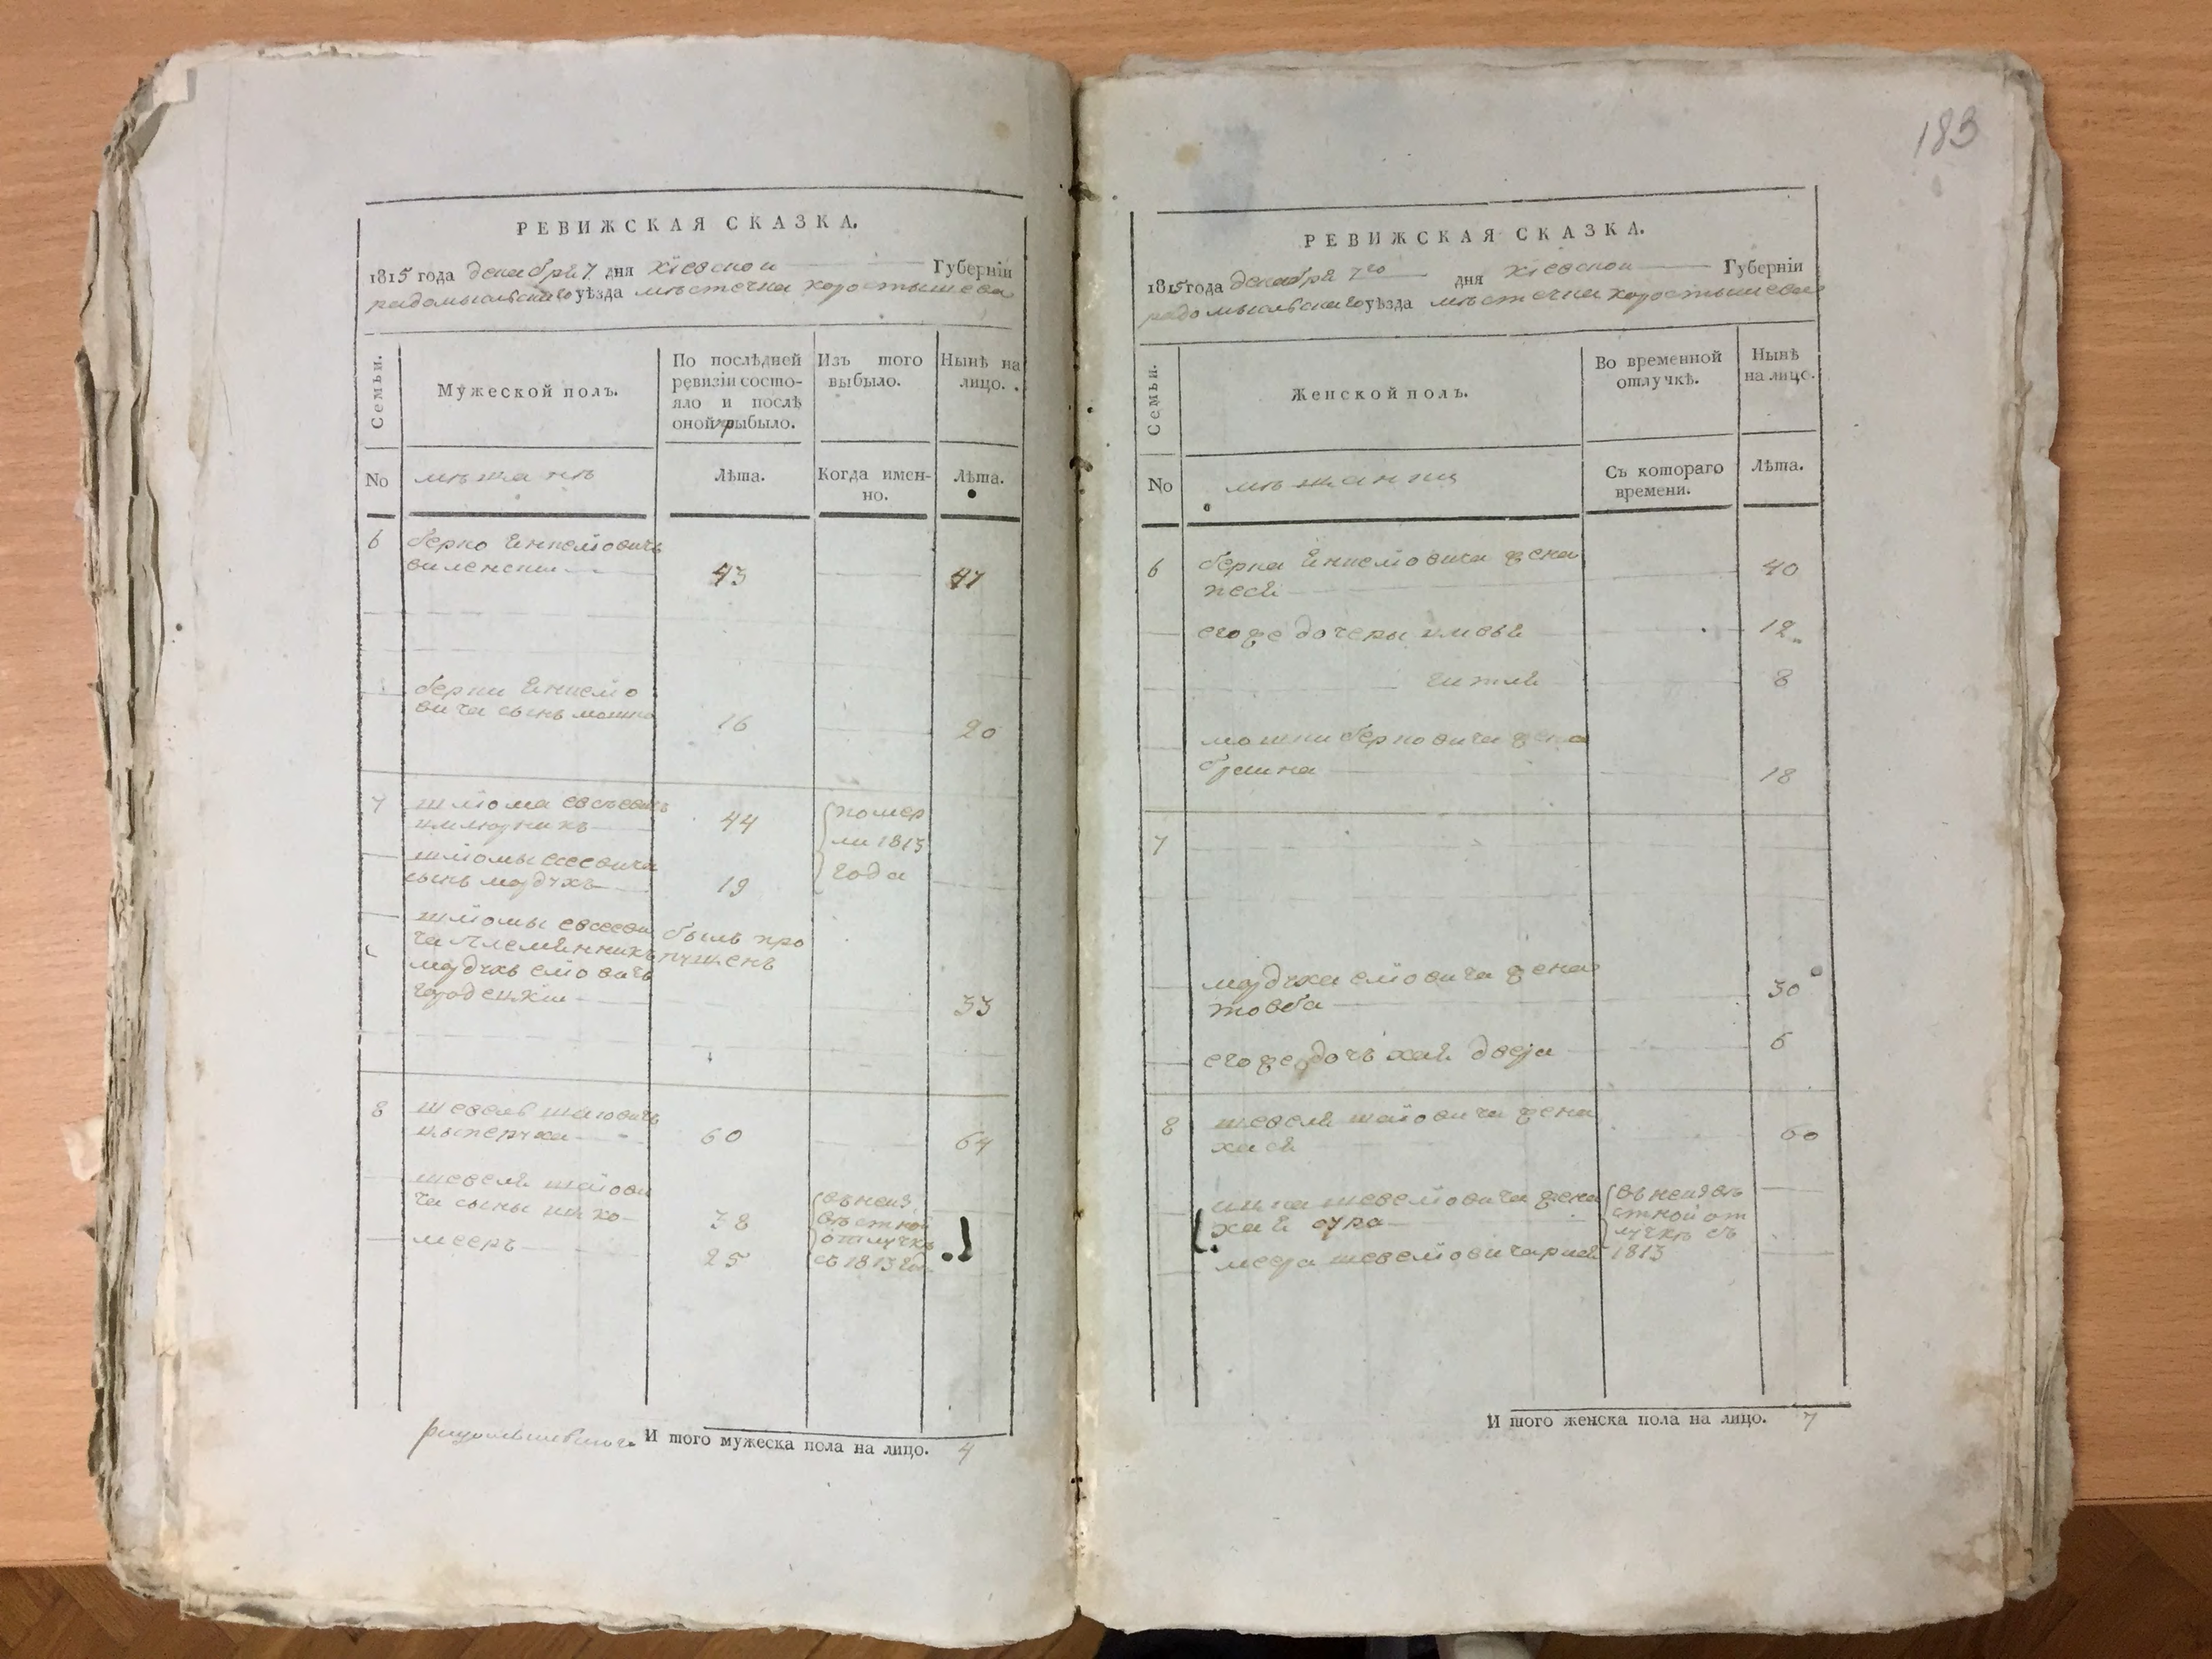 РЕВИЖСКАЯ СКАЗКА.
1815 года декабря 7 дня кіевской Губерніи
радомысльскаго уѣзда мѣстечка коростышева
Семьи.
Мужеской полъ.
По послѣдней ревизіи состо-
яло и послѣ
оной прибыло.
Изъ того
выбыло.
Нынѣ на
лицо.
No
мѣщанѣ
Лѣта.
Когда имен-
но.
Лѣта.
6 берко Янкеліовичъ
виленски 43 47
берки Янкеліо
вича сынъ мошко 16 20
7 шліома евсѣевичъ 44 померли 1813 года
шліомы евсеевича
сынъ мордухъ 19
шліомы евсееви былъ про
ча племянникъ пущенъ
мордухъ еліовичъ
городецкіи 33
8 шевель шаіовичъ
60 64
шевеля шаіови
ча сыны ицко 38 въ неиз
вѣстной
отлучкѣ
мееръ 25 съ 1813 го
И того мужеска пола на лицо. 4
183
РЕВИЖСКАЯ СКАЗКА.
1815 года декабря 7го дня кіевской Губерніи
радомысльскаго уѣзда мѣстечка коростышева
Семьи.
Женской полъ.
Во временной
отлучкѣ.
Нынѣ
на лицо.
No
мѣщанки
Съ котораго
времени.
Лѣта.
6 берка Янкеліовича жена
песя 40
егоже дочеры 12
8
мошки берковича жена
18
7
мордуха еліовича жена
товба 30
егоже дочъ хая двера 6
8 шевеля шаіовича жена
хася 60
ицка шевеліовича жена въ неизвѣ
хая сура стной от
лучкѣ съ
меера шевеліовича 1813
И того женска пола на лицо. 7